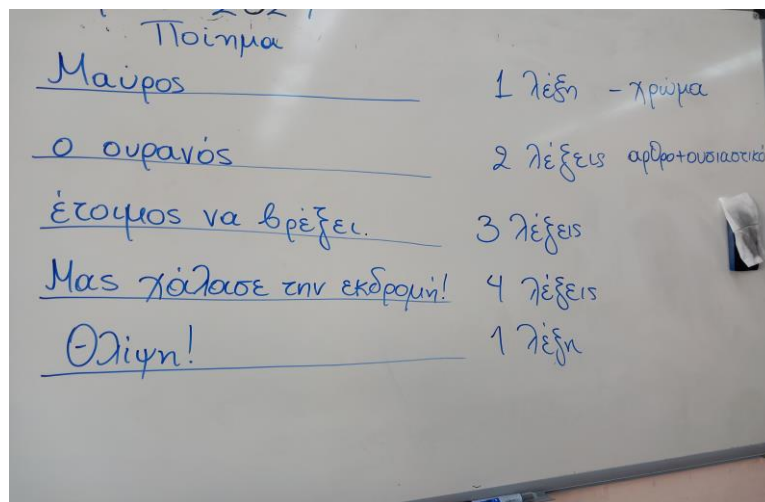 Ποίημα
Μαύρος 1 λέξη - χρώμα
ο ουρανός 2 λέξεις αρθρο+ουσιαστικό
έτοιμος να βρέξει. 3 λέξεις
Μας χάλασε την εκδρομή! 4 λέξεις
Θλίψη! 1 λέξη